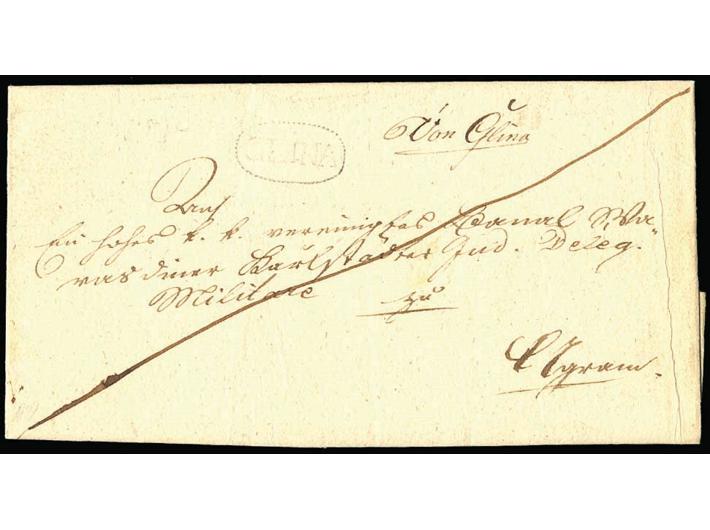 Von Glina
GLINA
An
Ein hohes k. k. vereinigtes Banal Wa„
rasdiner Karlstädter Jud. Deleg.
Militare
zu
Agram.